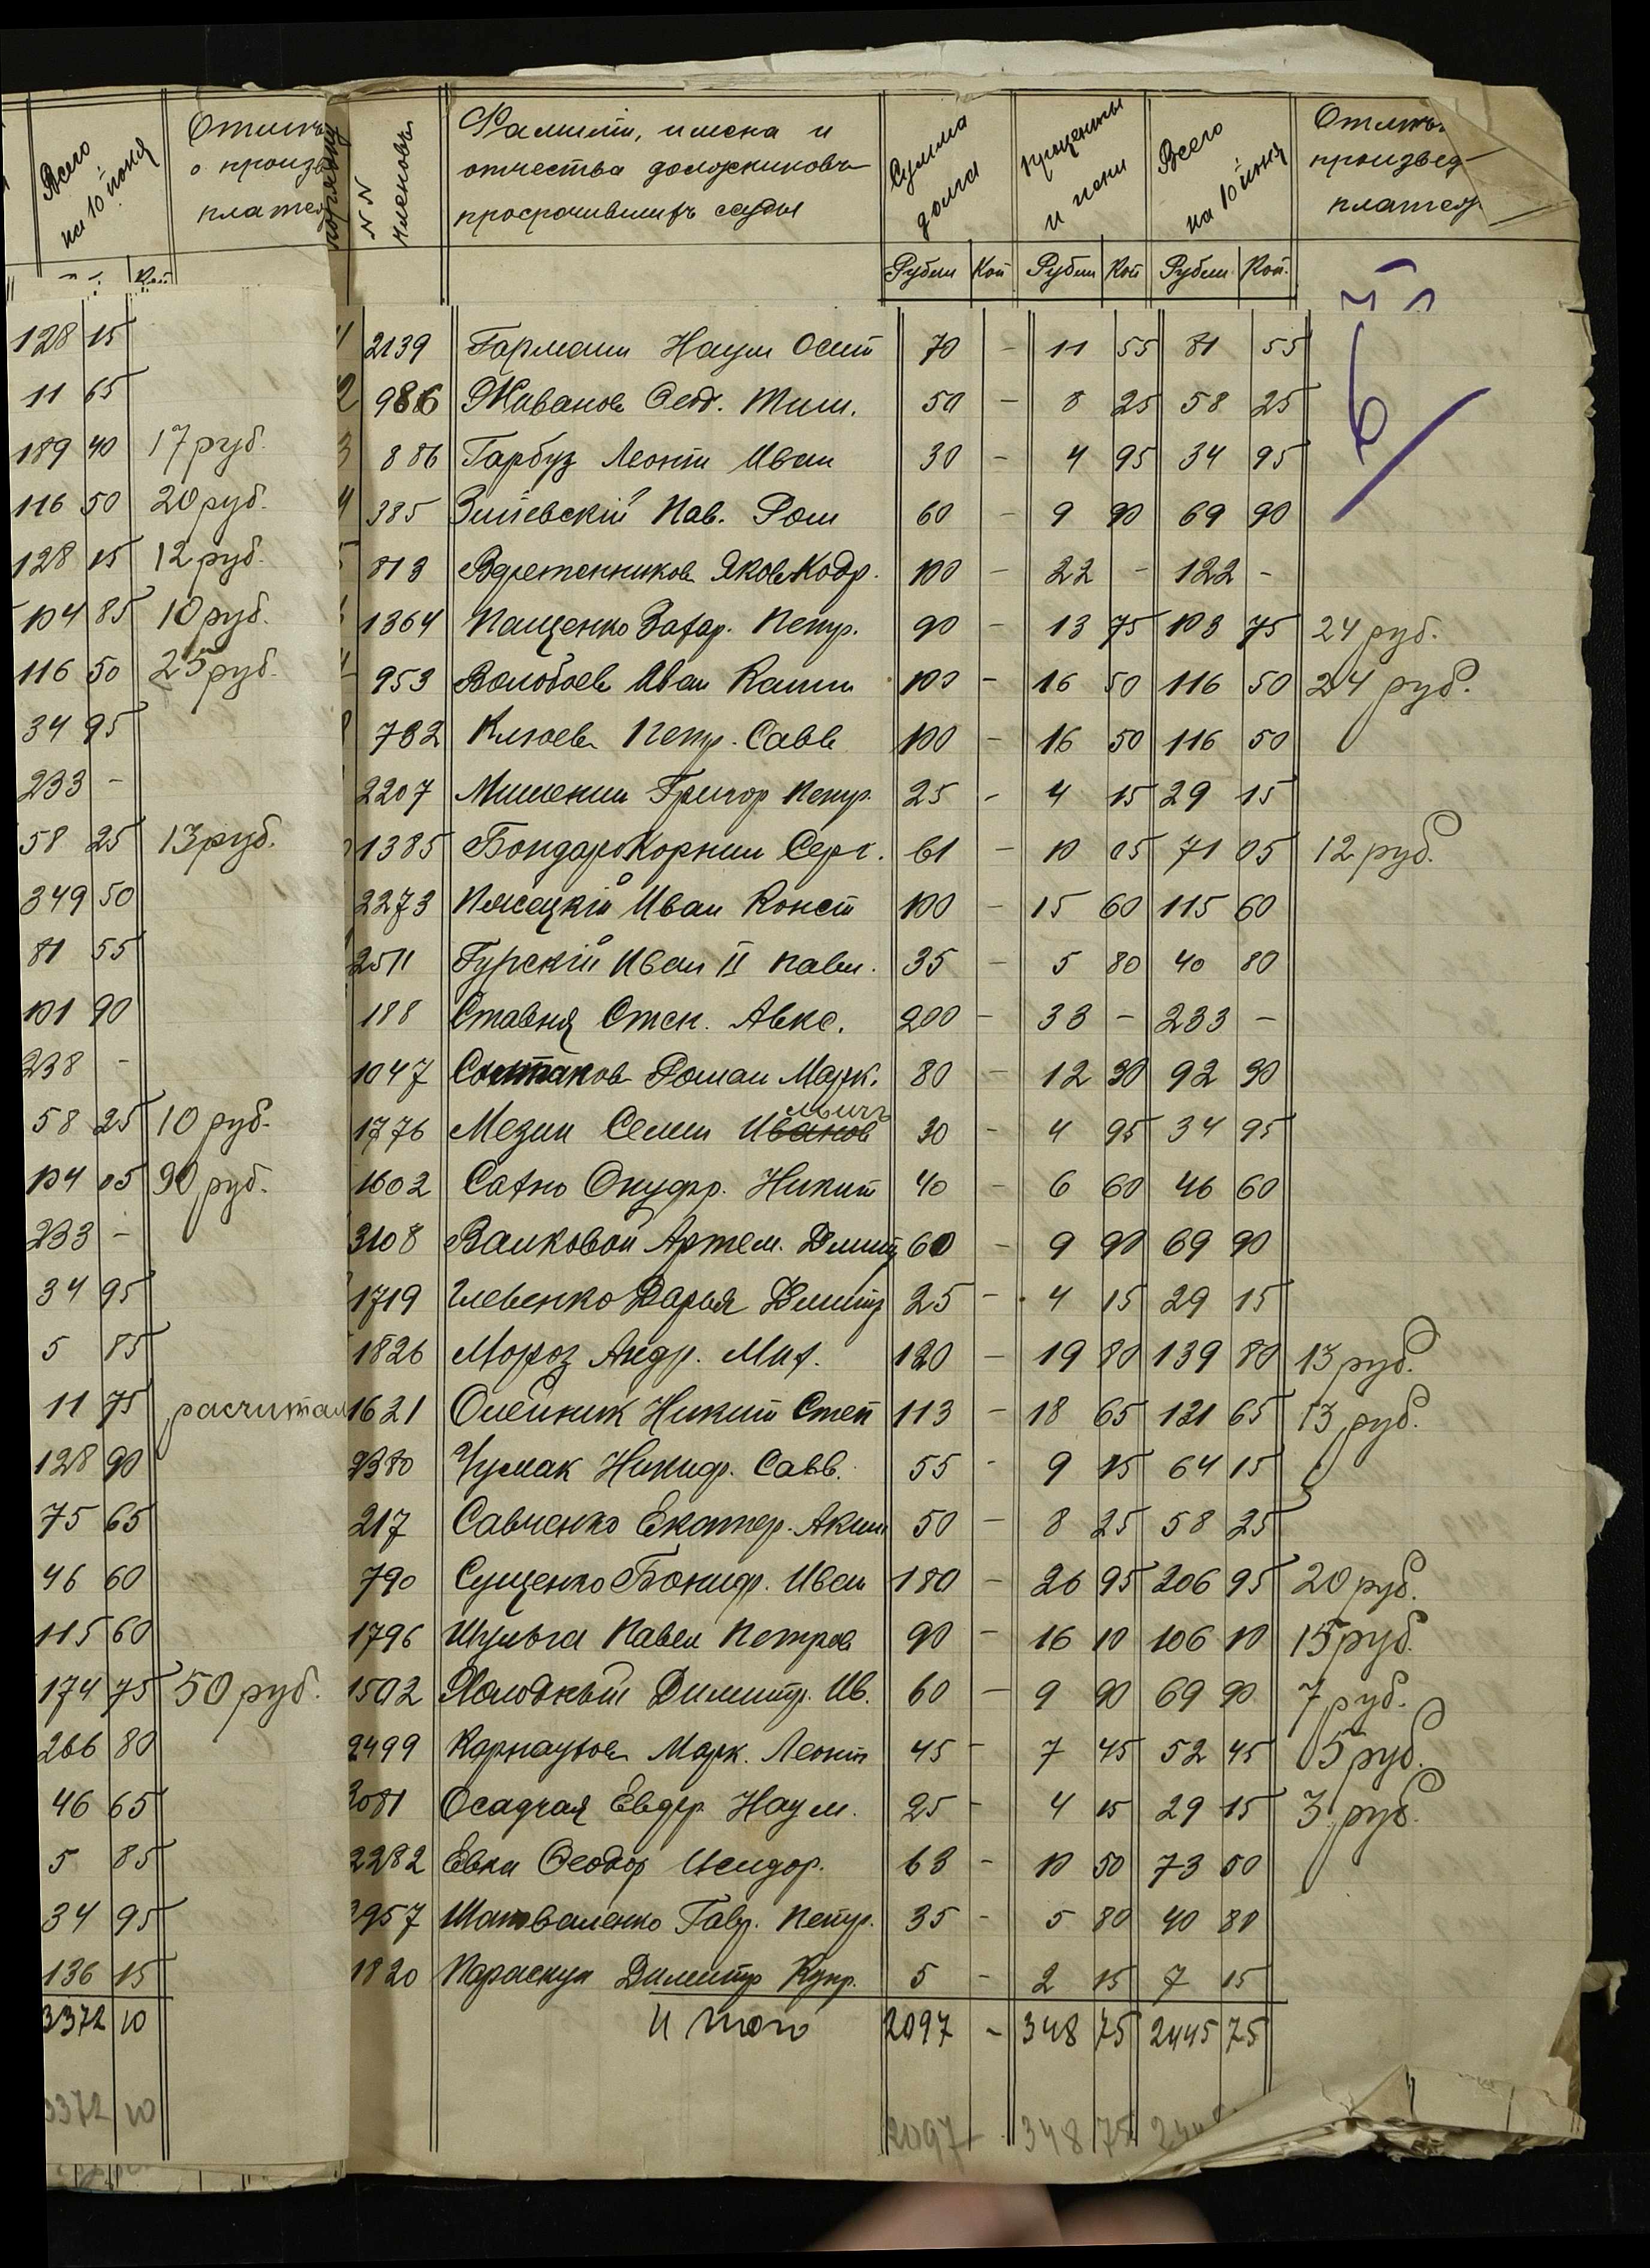 Всего на 10 іюня
Отмѣтк
о произв
платеж
Коп
128 15
11 65
189 40 17 руб.
116 50 20 руб.
128 15 12 руб.
104 85 10 руб.
116 50 25 руб.
34 95
233 -
58 25 13 руб.
349 50
81 55
101 90
238 -
58 25 10 руб.
104 05 90 руб.
233 -
34 95
5 85
11 75 расчитал
128 90
75 65
46 60
115 60
174 75 50 руб.
266 80
46 65
5 85
34 95
136 15
3372 10
3372 10
№№ членовъ
Фамиліи, имена и
отчества должниковъ
просрочившихъ ссуды
Сумма долга
проценты и пени
Всего на 10 іюня
Отмѣтк
произвед
платеж
Рубли Коп Рубли Коп Рубли Коп.
2139 Гармаш Наум Осип 70 - 11 55 81 55
986 Жаванов Фед. Тим. 50 - 8 25 58 25
886 Гарбуз Леонт Иван 30 - 4 95 34 95
385 Змѣевскій Пав. Ром 60 - 9 90 69 90
813 Веретенников Яков Кодр. 100 - 22 - 122 -
1364 Пащенко Захар. Петр. 90 - 13 75 103 75 24 руб.
953 Волобоев Иван 100 - 16 50 116 50 24 руб.
782 Клюев Петр. Савв 100 - 16 50 116 50
2207 Мишенин Григор Петр. 25 - 4 15 29 15
1385 Бондарь Корнил Серг. 61 - 10 05 71 05 12 руб.
2273 Пясецкій Иван Конст 100 - 15 60 115 60
2511 Гурскій Иван II Павл. 35 - 5 80 40 80
188 Ставня Степ. Авкс. 200 - 33 - 233 -
1047 Роман Марк. 80 - 12 30 92 30
1776 Мезин Семен Иванов Ильичъ 30 - 4 95 34 95
1602 Сахно Онуфр. Никит 40 - 6 60 46 60
3108 Валковой Артем. Дмит 60 - 9 90 69 90
1719 Глевенко Дарья Дмитр 25 - 4 15 29 15
1826 Мороз Андр. Мих. 120 - 19 80 139 80 13 руб.
1621 Олейник Никит Степ 113 - 18 65 131 65 13 руб.
2380 Чумак Никиф. Савв. 55 - 9 15 64 15
217 Савченко Екатер. Аким 50 - 8 25 58 25
790 Сущенко Иван 180 - 26 95 206 95 20 руб.
1796 Шульга Павел Петров 90 - 16 10 106 10 15 руб.
1502 Холодный Димитр. Ив. 60 - 9 90 69 90 7 руб.
2499 Карнаухов Марк. Леонт 45 - 7 45 52 45 5 руб.
2081 Осадчая Евдр. Наум. 25 - 4 15 29 15 3 руб.
2282 Евка Феодор Исидор. 63 - 10 50 73 50
2957 Шаповаленко Гавр. Петр. 35 - 5 80 40 80
1820 Параскун Димитр Купр. 5 - 2 15 7 15
Итого 2097 - 348 75 2445 75
2097 - 348 75 244